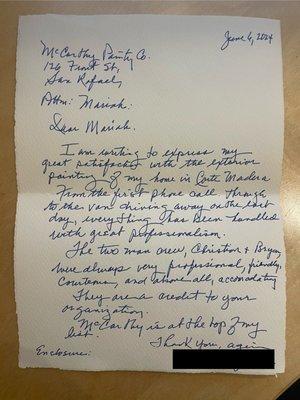 June 6, 2024
McCarthy Painty Co.
126 Front St,
San Rafael,
Attn: Mariah:
Dear Mariah.
I am writing to express my
great satisfaction with the exterior
painting of my home in Corte Madera
From the first phone call through
to the van driving away on the last
day, everything has been handled
with great professionalism.
The two man crew, Christian & Bryan
were always very professional, friendly,
courteous, and above all, accomodating
They are a credit to your
organization.
McCarthy is at the top of my
list
Thank you, again
Enclosure: